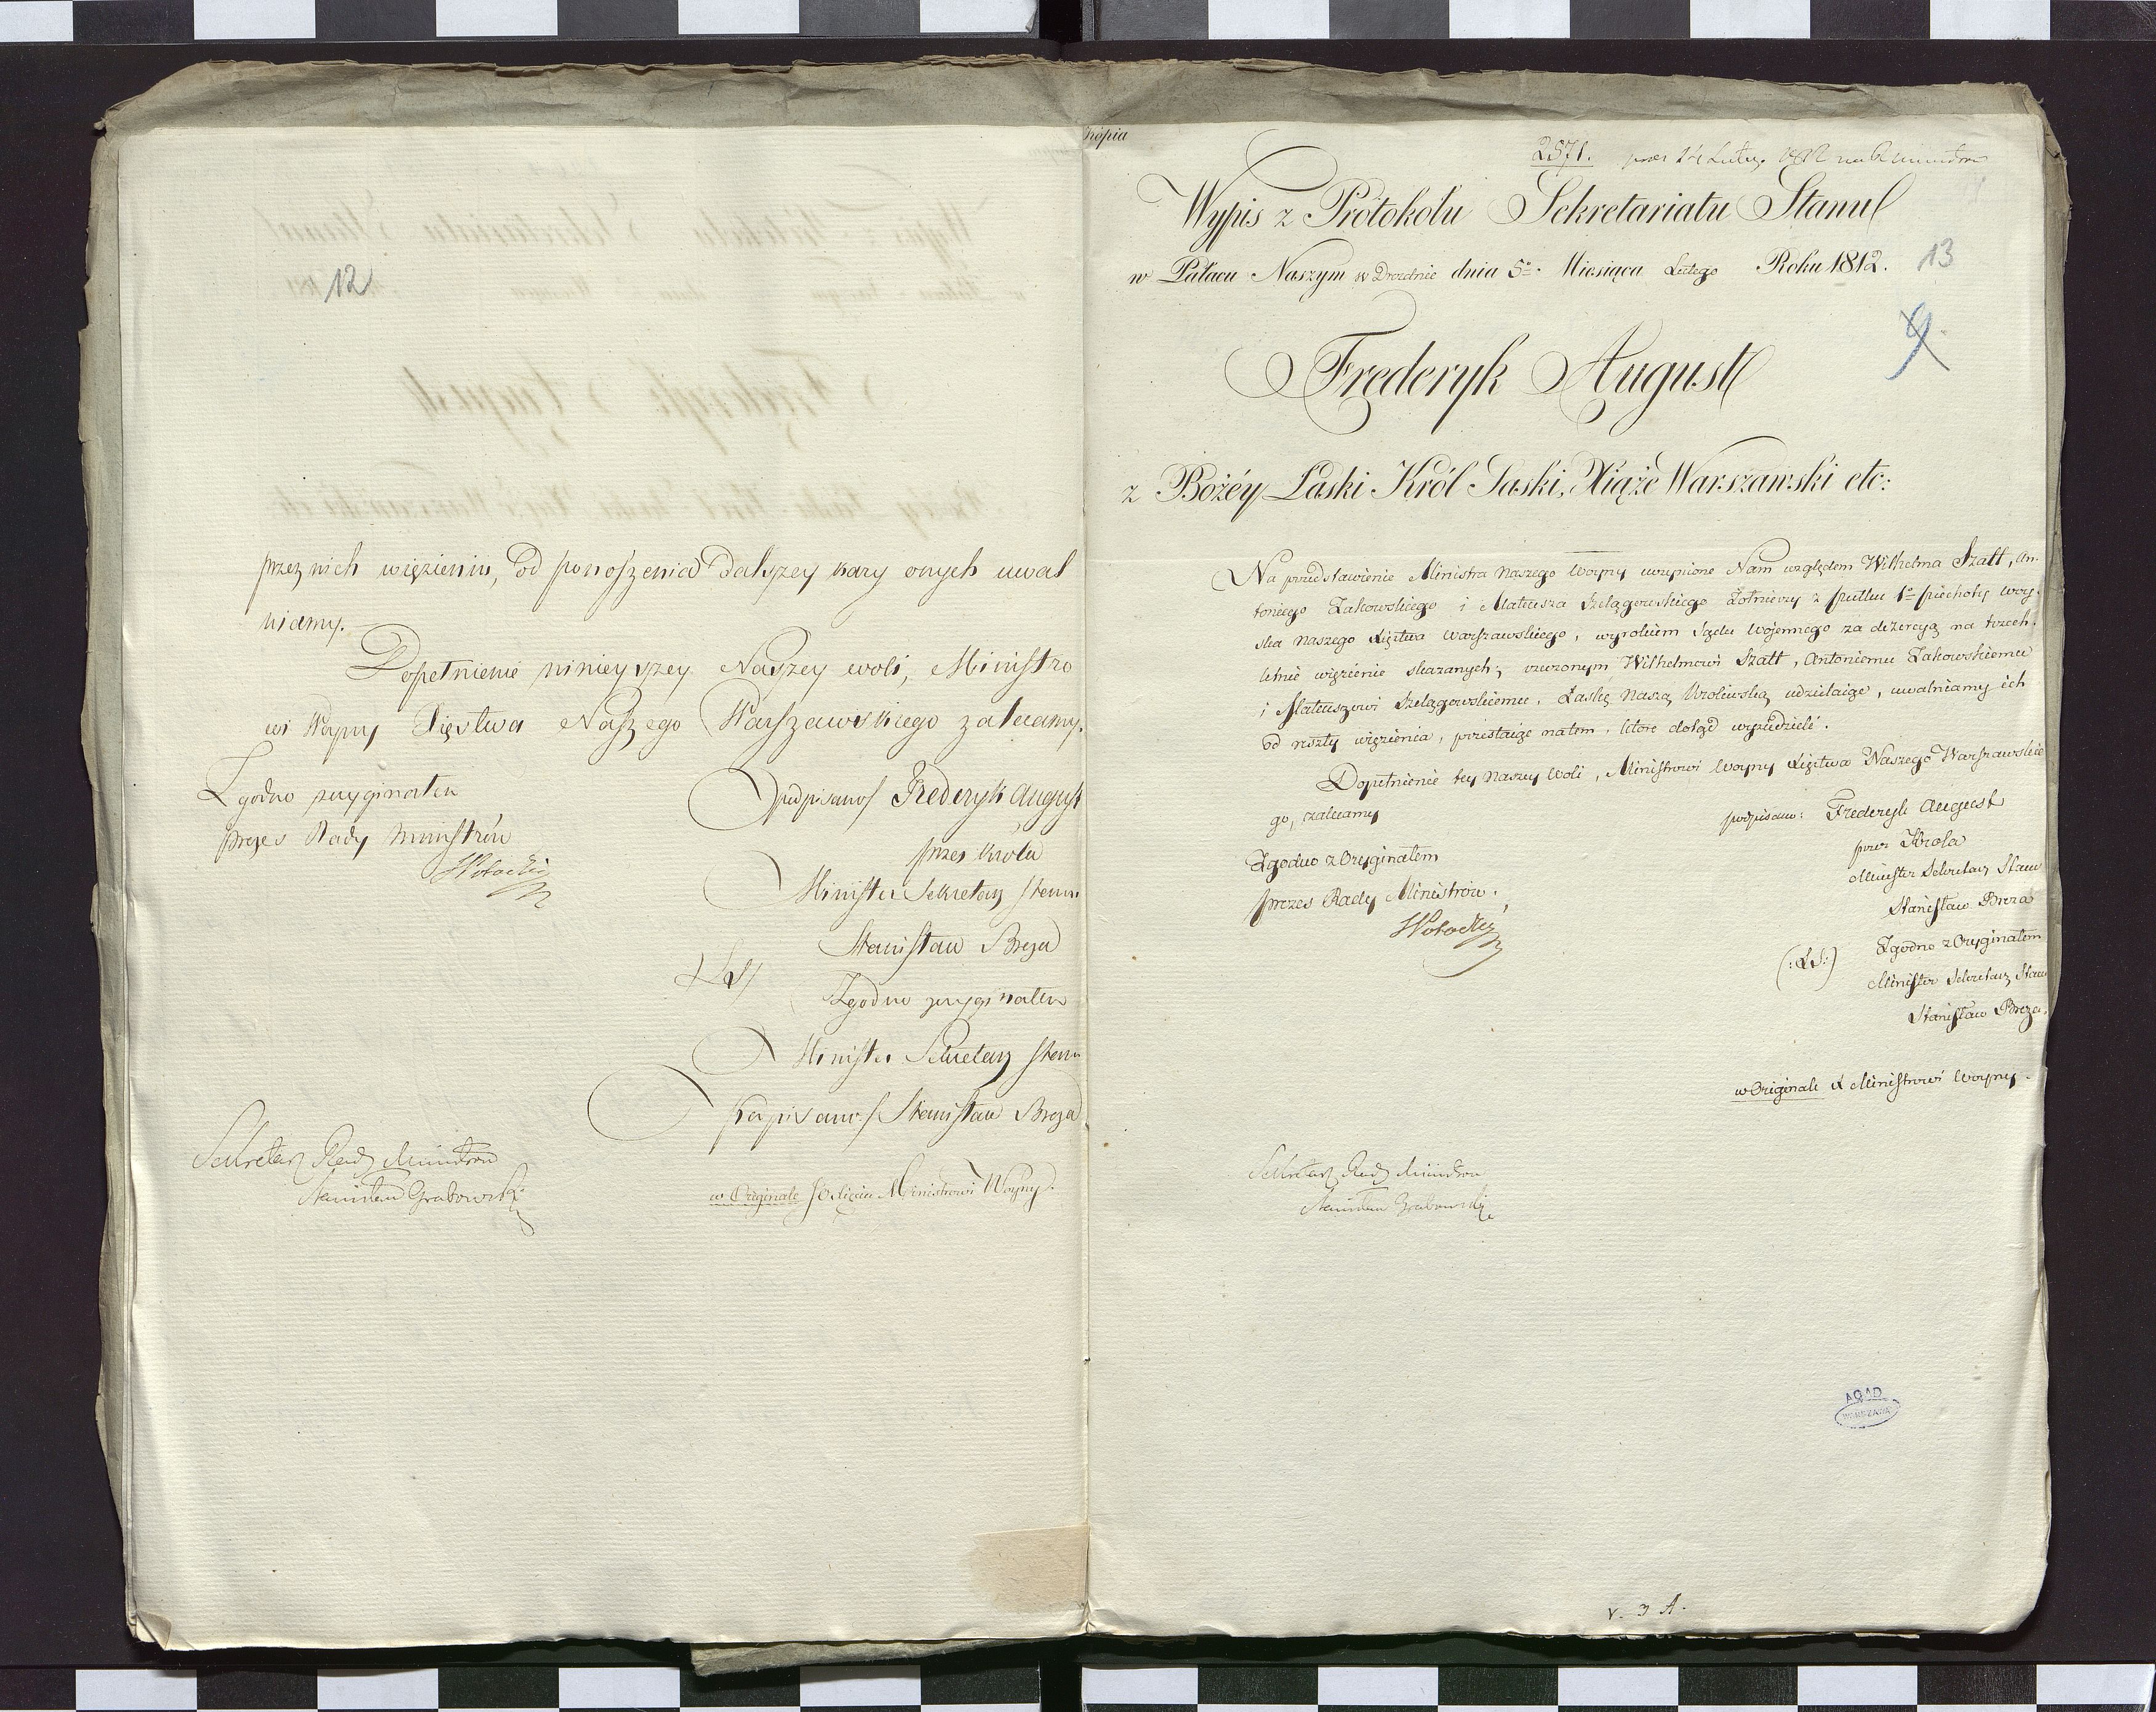 12
przez nich więzieniu, od ponoszenia dalszey kary onych uwal
niamy.
Dopełnienie ninieyszey Naszey woli, Ministro
wi Woyny Xięstwa Naszego Warszawskiego zalecamy.
Zgodno z oryginałem
prezes Rady Ministrów
podpisano/ Frederyk August
przez Króla
Minister Sekretarz Stanu
Stanisław Breza
/LS/
Zgodno z oryginałem
Minister Sekretarz Stanu
podpisano/ Stanisław Breza
Sekretarz Rady Ministrów
Stanisław Grabowski
w Oryginale JO Xięciu Ministrowi Woyny.
Kopia
2571. prez 14 Lutego 1812 na R Ministrów
Wypis z Protokołu Sekretariatu Stanu
w Pałacu Naszym w Dreźnie dnia 5o. Miesiąca Lutego Roku 1812.
13
9
Frederyk August
z Bożéy Łaski Król Saski, Xiąże Warszawski etc:
Na przedstawienie Ministra Naszego Woyny uczynione Nam względem Wilhelma Szatt, An-
toniego Żakowskiego i Mateusza Szelągowskiego Żołnierzy z pułku 1o piechoty woy-
ska naszego Xięstwa Warszawskiego, wyrokiem Sądu Wojennego za dezercyą na trzech
letnie więzienie skazanych; rzeczonym Wilhelmowi Szatt, Antoniemu Żakowskiemu
i Mateuszowi Szelągowskiemu, Łaskę Naszą Królewską udzielaiąc, uwalniamy ich
od reszty więzienia, przestaiąc na tem, które dotąd wysiedzieli.
Dopełnienie tey naszey woli, Ministrowi Woyny Xięstwa Naszego Warszawskie
go, zalecamy
podpisano: Frederyk August
przez Króla
Minister Sekretarz Stanu
Stanisław Breza
Zgodno z Oryginałem
prezes Rady Ministrów.
(:LS:)
Zgodno z Oryginałem
Minister Sekretarz Stanu
Stanisław Breza.
w Originale X Ministrowi Woyny.
Sekretarz Rady Ministrów
Stanisław Grabowski
AGAD
WARSZAWA
V. 3 A.